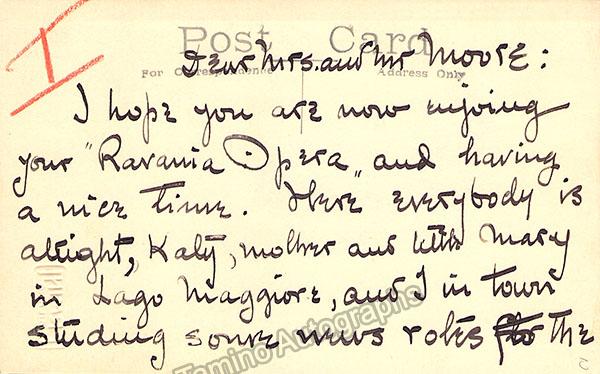 I
Post Card
For Correspondence Address Only
Dear Mrs. and Mr Moore:
I hope you are now enjoing
your "Ravania Opera" and having
a nice time. Here everybody is
allright, Katy, mother and little Mary
in Lago Maggiore, and I in town
studing some news roles for the
Tamino Autographs